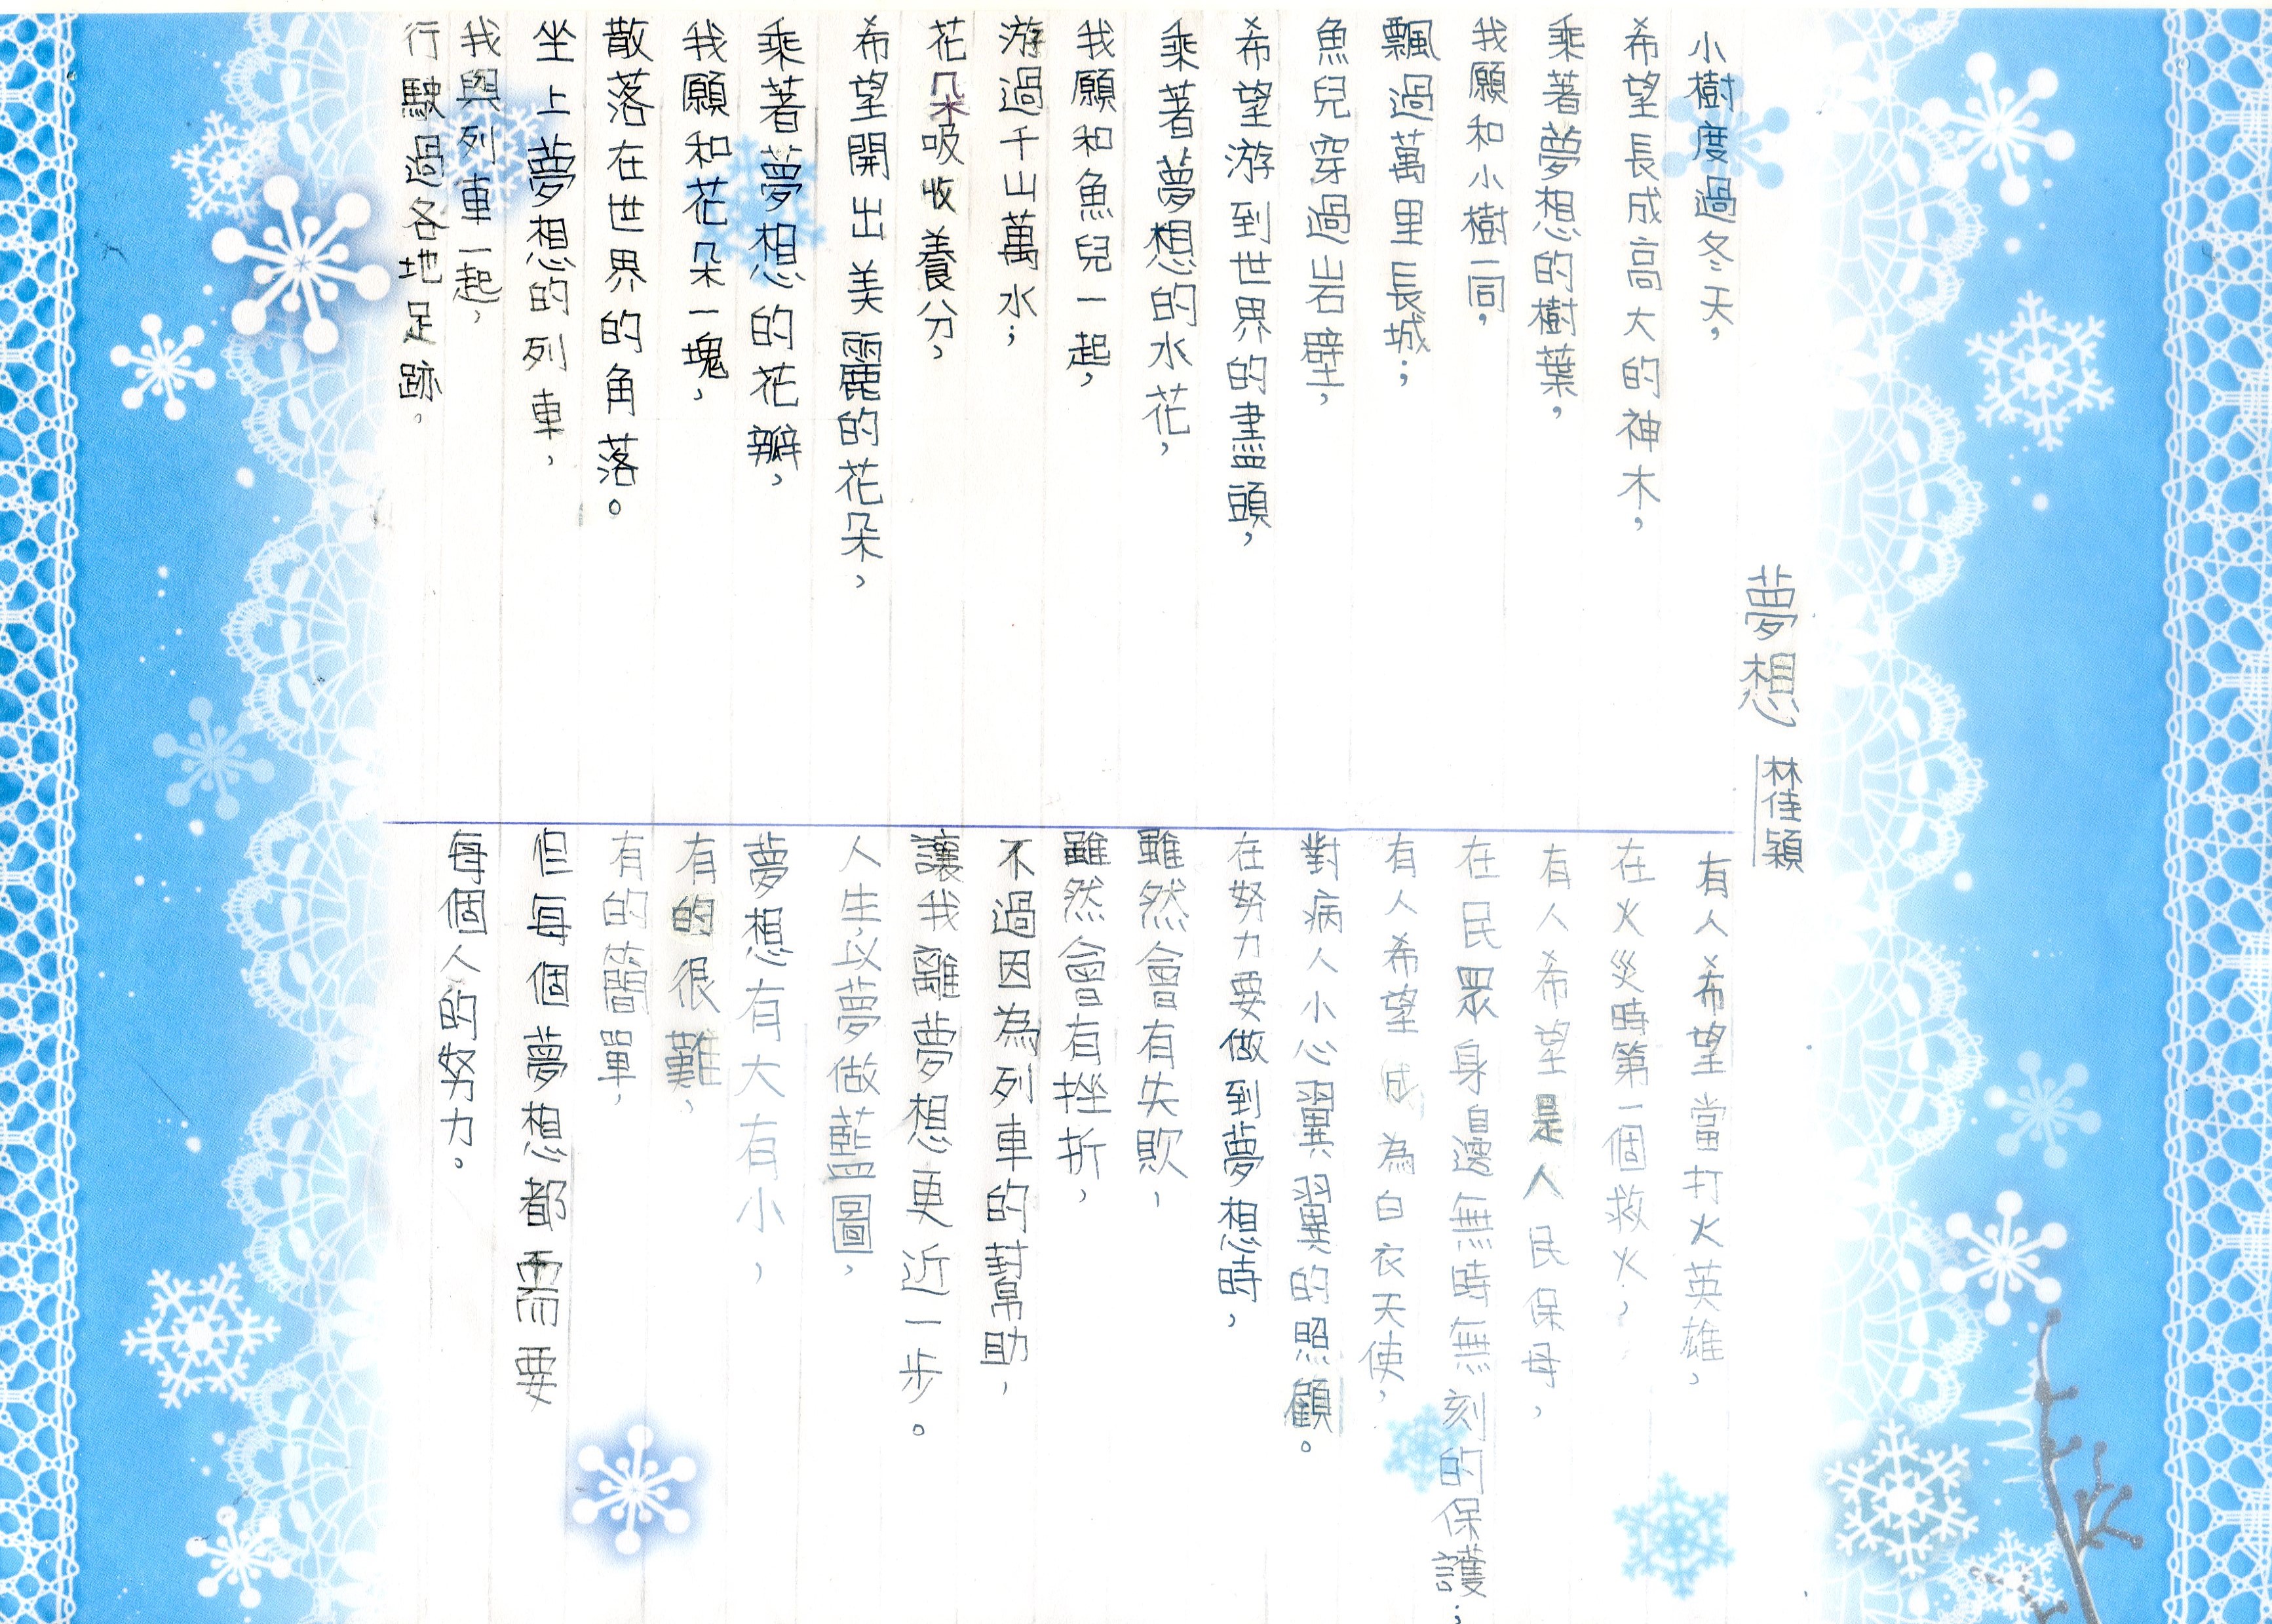 夢想
林佳穎
小樹度過冬天，
希望長成高大的神木，
乘著夢想的樹葉，
我願和小樹一同，
飄過萬里長城；
魚兒穿過山石壁，
希望游到世界的盡頭，
乘著夢想的水花，
我願和魚兒一起，
游過千山萬水；
花朵吸收養分，
希望開出美麗的花朵，
乘著夢想的花瓣，
我願和花朵一塊，
散落在世界的角落。
坐上夢想的列車，
我與列車一起，
行駛過各地足跡。
有人希望當打火英雄，
在火災時第一個救火，
有人希望是人民保母，
在民眾身邊無時無刻的保護；
有人希望成為白衣天使，
對病人小心翼翼的照顧。
在努力要做到夢想時，
雖然會有失敗，
雖然會有挫折，
不過因為列車的幫助，
讓我離夢想更近一步。
人生以夢做藍圖，
夢想有大有小，
有的很難，
有的簡單，
但每個夢想都需要
每個人的努力。